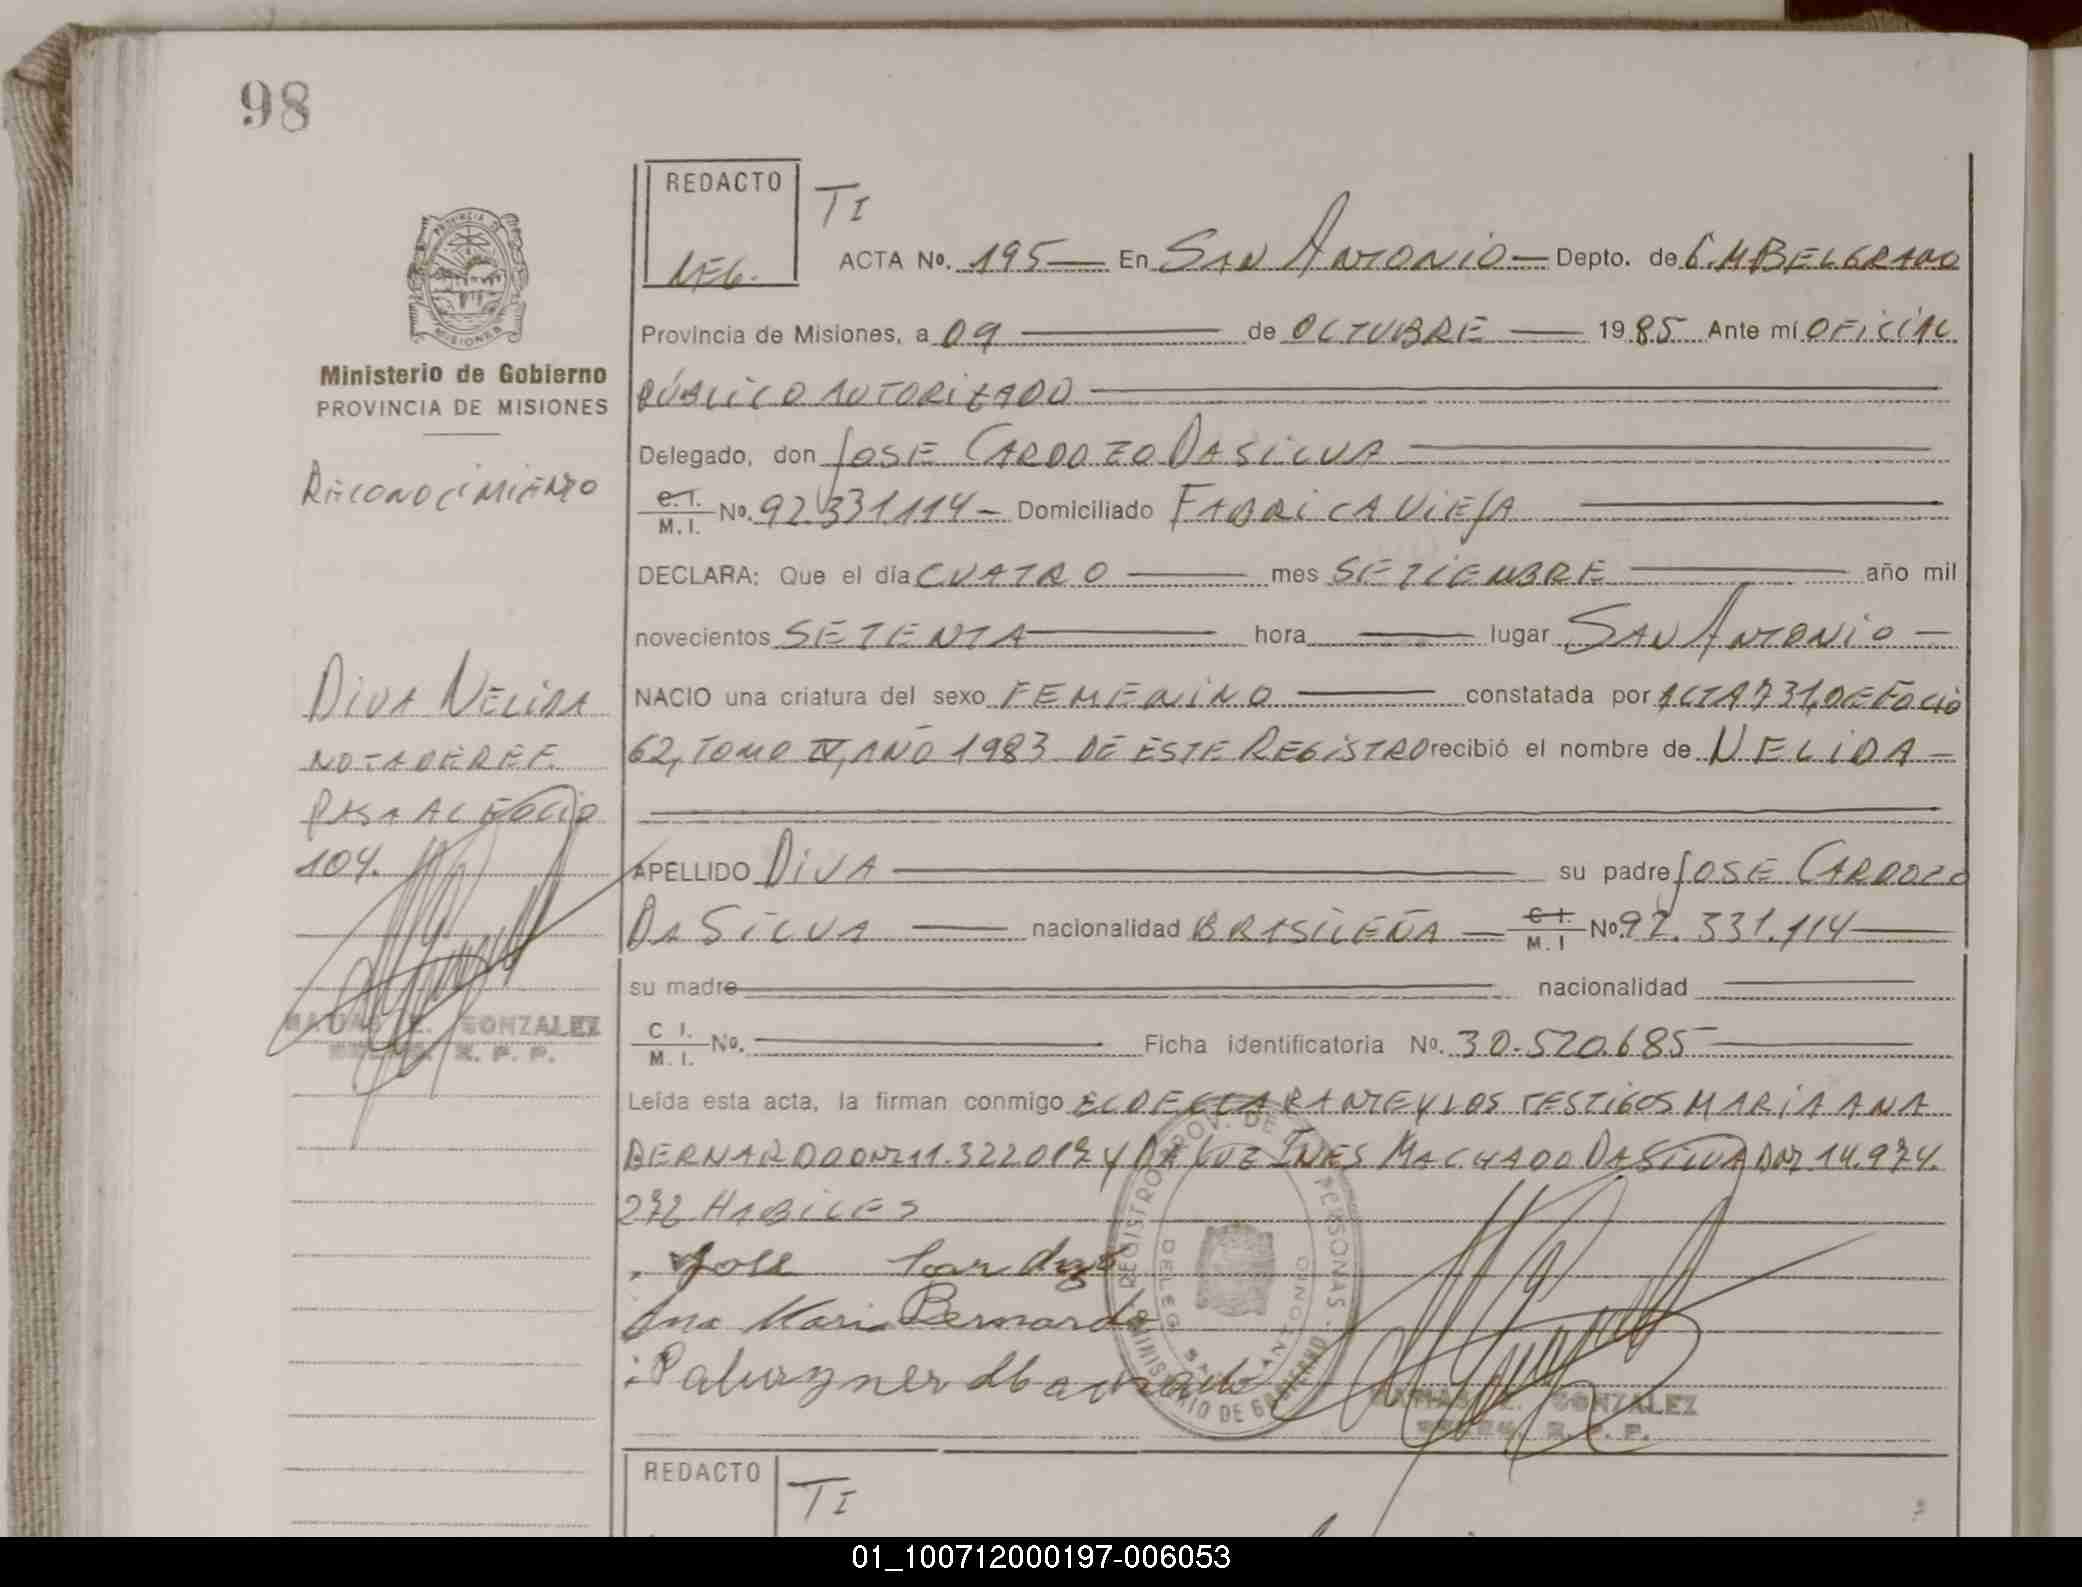 98
REDACTO
TI
ACTA No. 195 En SAN ANTONIO Depto. de G. M BELGRANO
PROVINCIA DE
MISIONES
Ministerio de Gobierno
PROVINCIA DE MISIONES
Provincia de Misiones, a 09 de OCTUBRE 1985 Ante mi OFICIAL
PÚBLICO AUTORIZADO
Delegado, don JOSE CARDOZO DASILVA
RECONOCIMIENTO
C.I. / M.I. No. 92.331.114 - Domiciliado FABRICA VIEJA
DECLARA: Que el día CUATRO mes SETIEMBRE año mil
novecientos SETENTA hora lugar SAN ANTONIO
DIVA NELIDA
NACIO una criatura del sexo FEMENINO constatada por ACTA 731, DE FOLIO
NOTA DE REF.
62, TOMO IV, AÑO 1983 DE ESTE REGISTRO recibió el nombre de NELIDA
PASA AL FOLIO
104.
APELLIDO DIVA su padre JOSE CARDOZO
DA SILVA nacionalidad BRASILEÑA C I. / M. I No. 92. 331.114
su madre nacionalidad
MATIAS E. GONZALEZ
R. P. P.
C I. / M. I. No. Ficha identificatoria No. 30.520.685
Leída esta acta, la firman conmigo EL DECLARANTE Y LOS TESTIGOS MARIA ANA
BERNARDO DNI 11.322.017 Y DA LUZ INES MACHADO DA SILVA DNI 14.974.
272 HABILES
Jose Cardozo
Ana Maria Bernardo
REGISTRO PROV. DE PERSONAS
MINISTERIO DE GOBIERNO
DELEG. SAN ANTONIO
MATIAS E. GONZALEZ
R. P. P.
REDACTO
TI
01_100712000197-006053